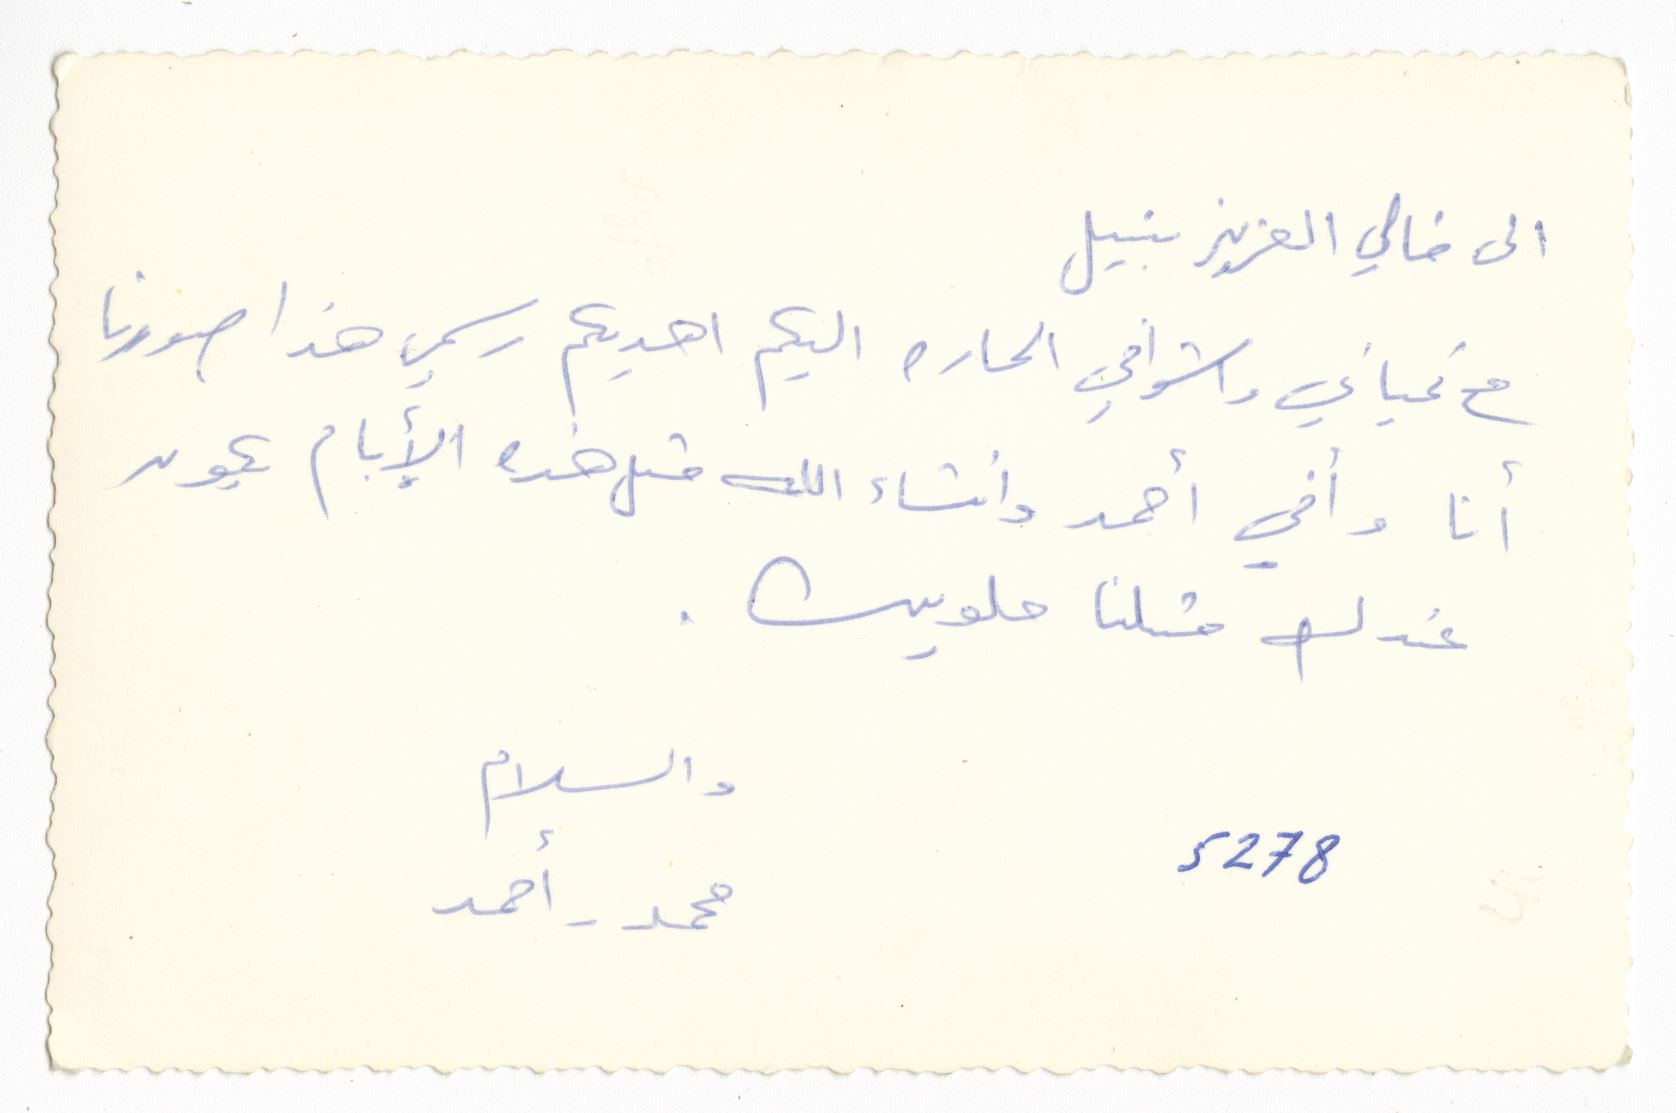 الى خالي العزيز نبيل
مع تحياتي واشواقي الحاره اليكم اهديكم رسمي هذا صورتنا
أنا وأخي أحمد وانشاء الله مثل هذه الأيام يكون
عندك مثلنا حلوين .
والسلام
محمد - أحمد
5278